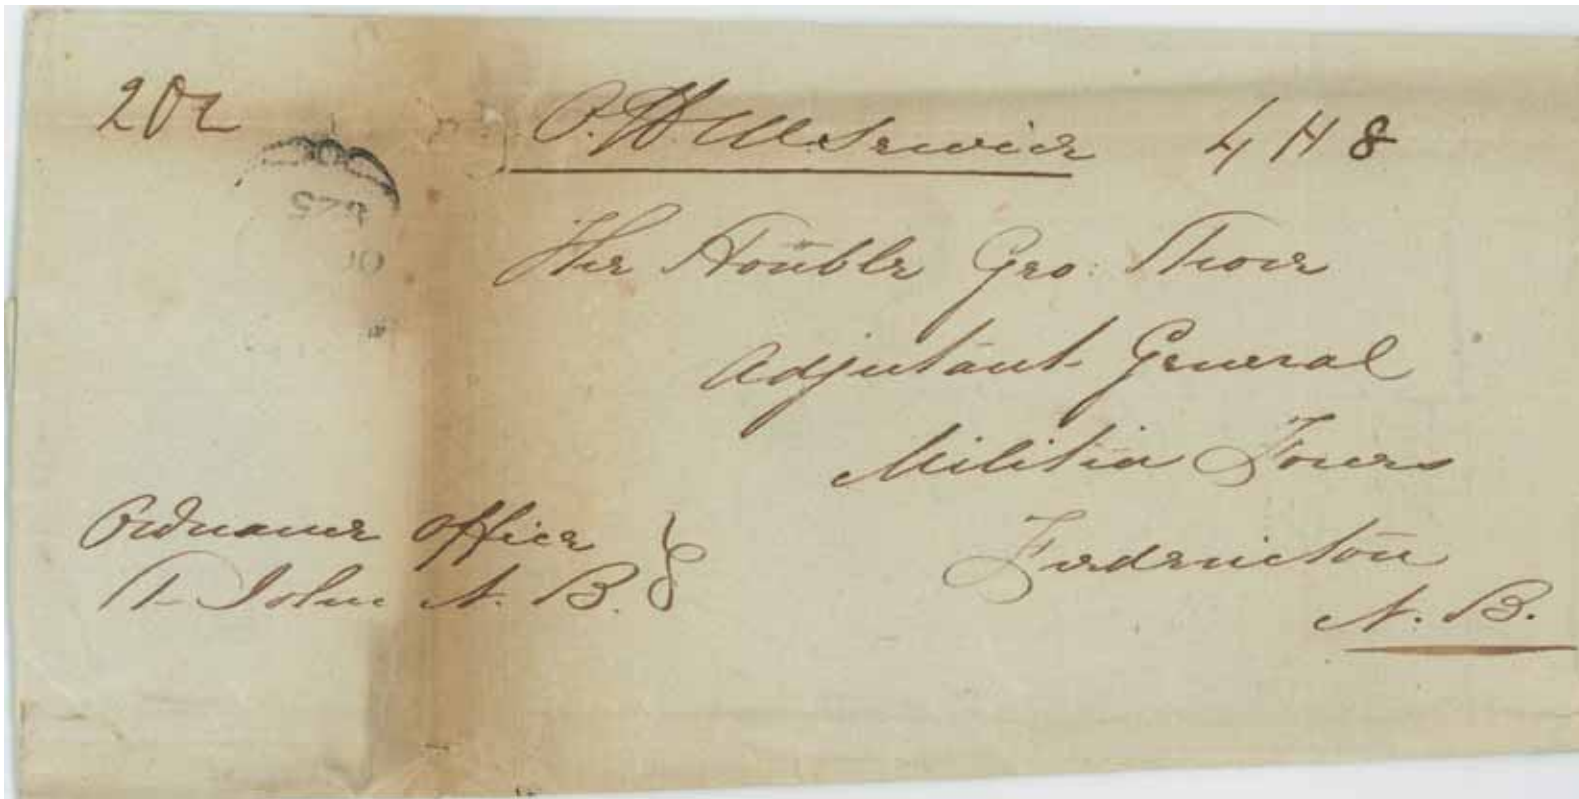 2Oz O. H. M. Service 4 H 8
The Honble Geo: Shore
Adjutant General
Militia Forces
Fredericton
N. B.
Ordnance Office
St. John N. B.